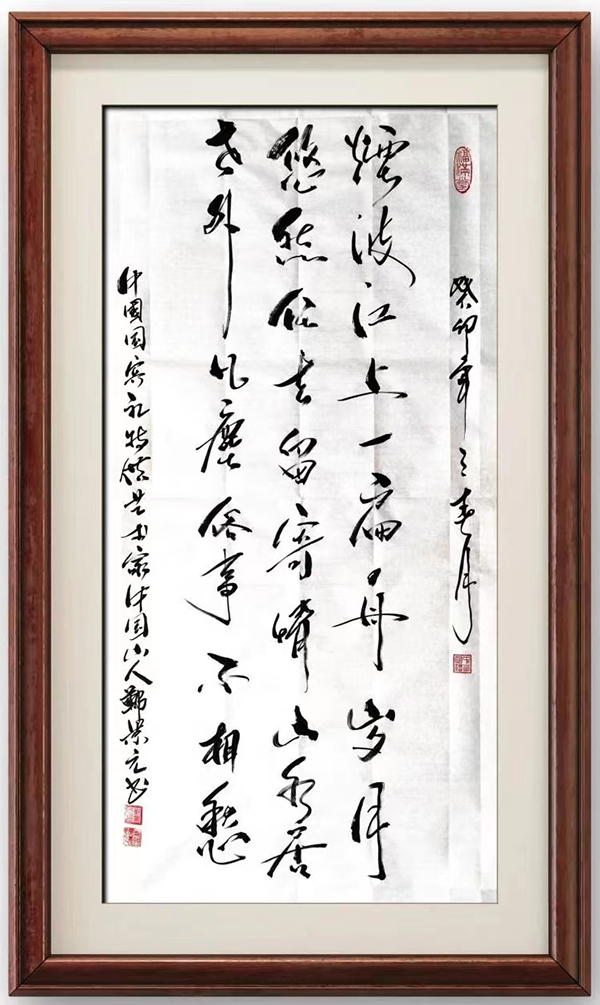 癸卯年春月
煙波江上一扁舟岁月
悠然任去留寄情山水居
世外凡塵俗事不相愁
中國国宾礼特艺术家中国人鄭元书